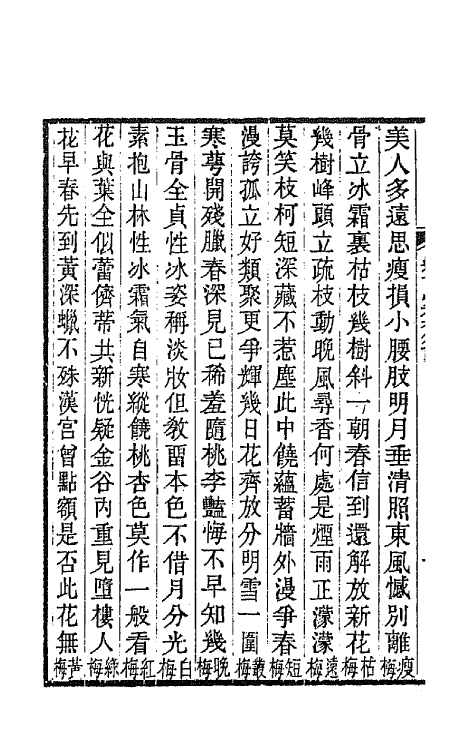 美人多遠思瘦損小腰肢明月垂清照東風憾別離瘦梅
骨立冰霜裏枯枝幾樹斜一朝春信到還解放新花枯梅
幾樹峰頭立疏枝動晚風尋香何處是煙雨正濛濛遠梅
莫笑枝柯短深藏不惹塵此中饒蘊蓄牆外漫爭春短梅
漫誇孤立好類聚更爭輝幾日花齊放分明雪一圍叢梅
寒蕚開殘臘春深見已稀羞隨桃李豔悔不早知幾晚梅
玉骨全貞性冰姿稱淡妝但敎畱本色不借月分光白梅
素抱山林性冰霜氣自寒縱饒桃杏色莫作一般看紅梅
花與葉全似蕾儕蒂共新恍疑金谷內重見墮樓人綠梅
花早春先到黃深蠟不殊漢宮曾點額是否此花無黃梅